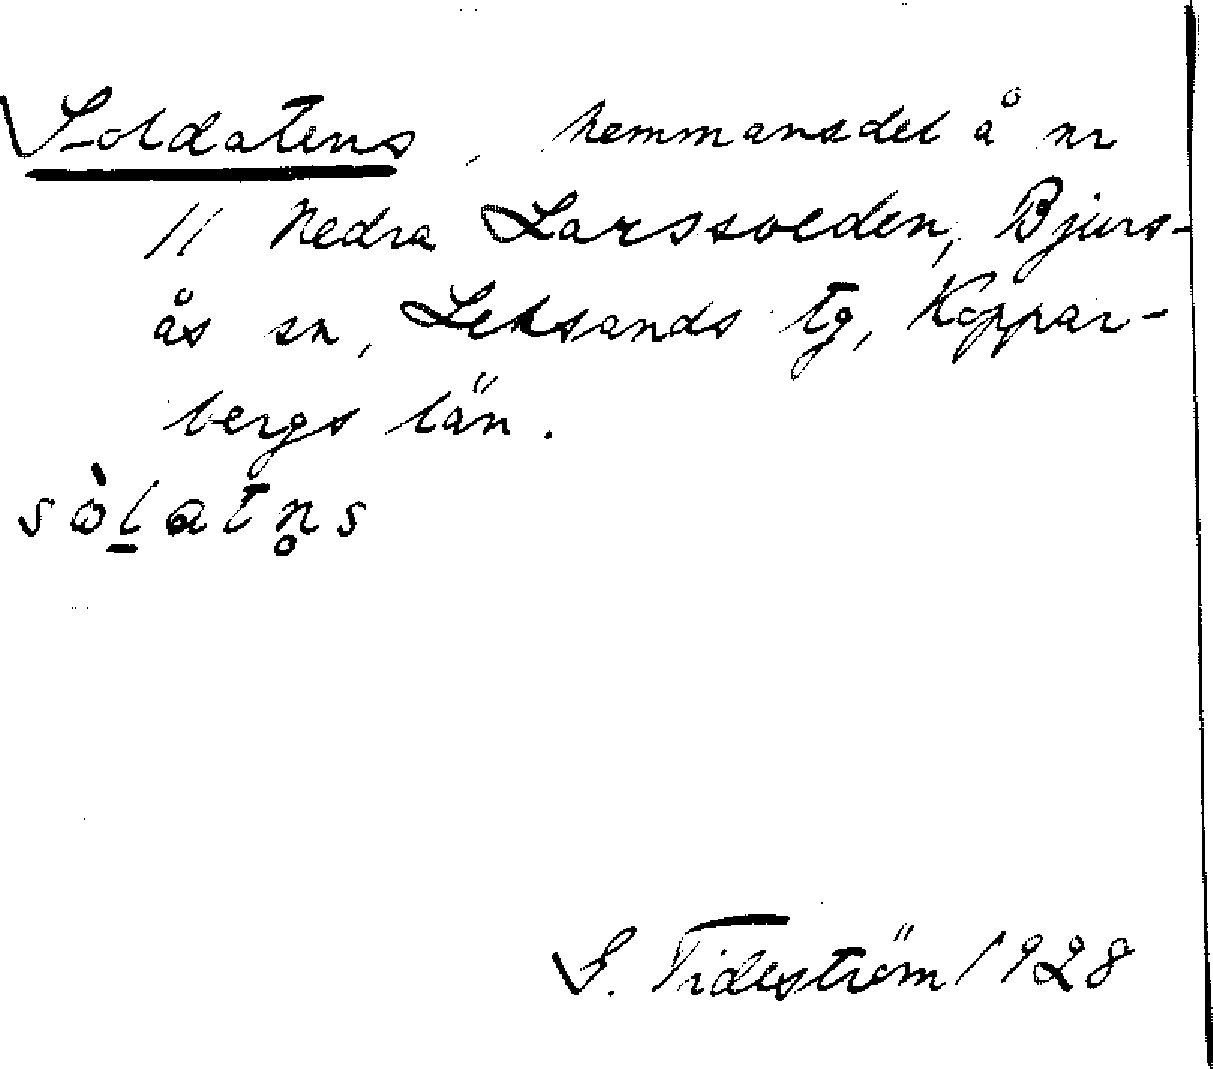 Soldatens, hemmansdel å nr
11 Nedra Larssveden, Bjurs-
ås sn, Leksands tg, Koppar-
bergs län.
sòl̠atn̥s
S. Tideström 1928